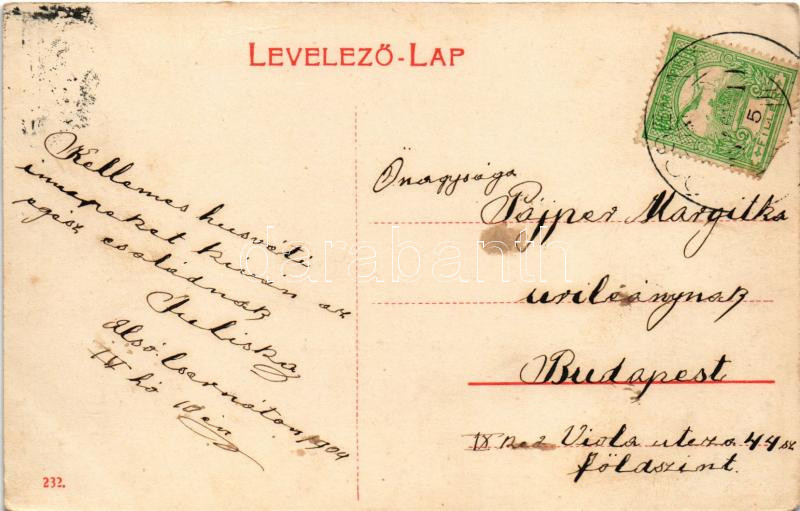 LEVELEZŐ-LAP
Kellemes husvéti
innepeket kiván az
egész családnak
Juliska
Alsó Csernáton, 1909
IV hó 10 én
Önagysága
Pájper Margitka
urileánynak
Budapest
IX ker Viola utcza 44 sz
földszint.
232.
darabanth